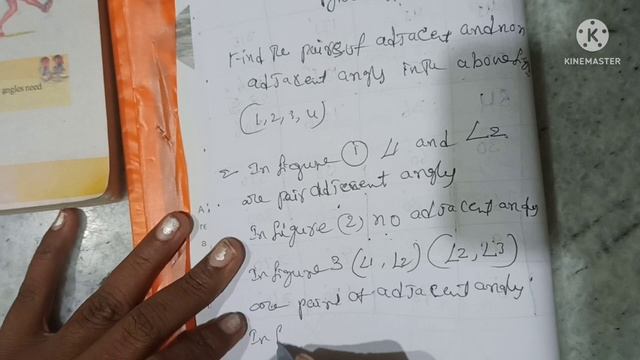 angles need
KINEMASTER
Find the pairs of adjacent and non
adjacent angls in the above fig
(1, 2, 3, 4)
In figure ① ∠1 and ∠2
are pair adjecent angly
In figure (2) no adjacent angly
In figure 3 (∠1, ∠2) (∠2, ∠3)
are pairs of adjacent angly.
In f